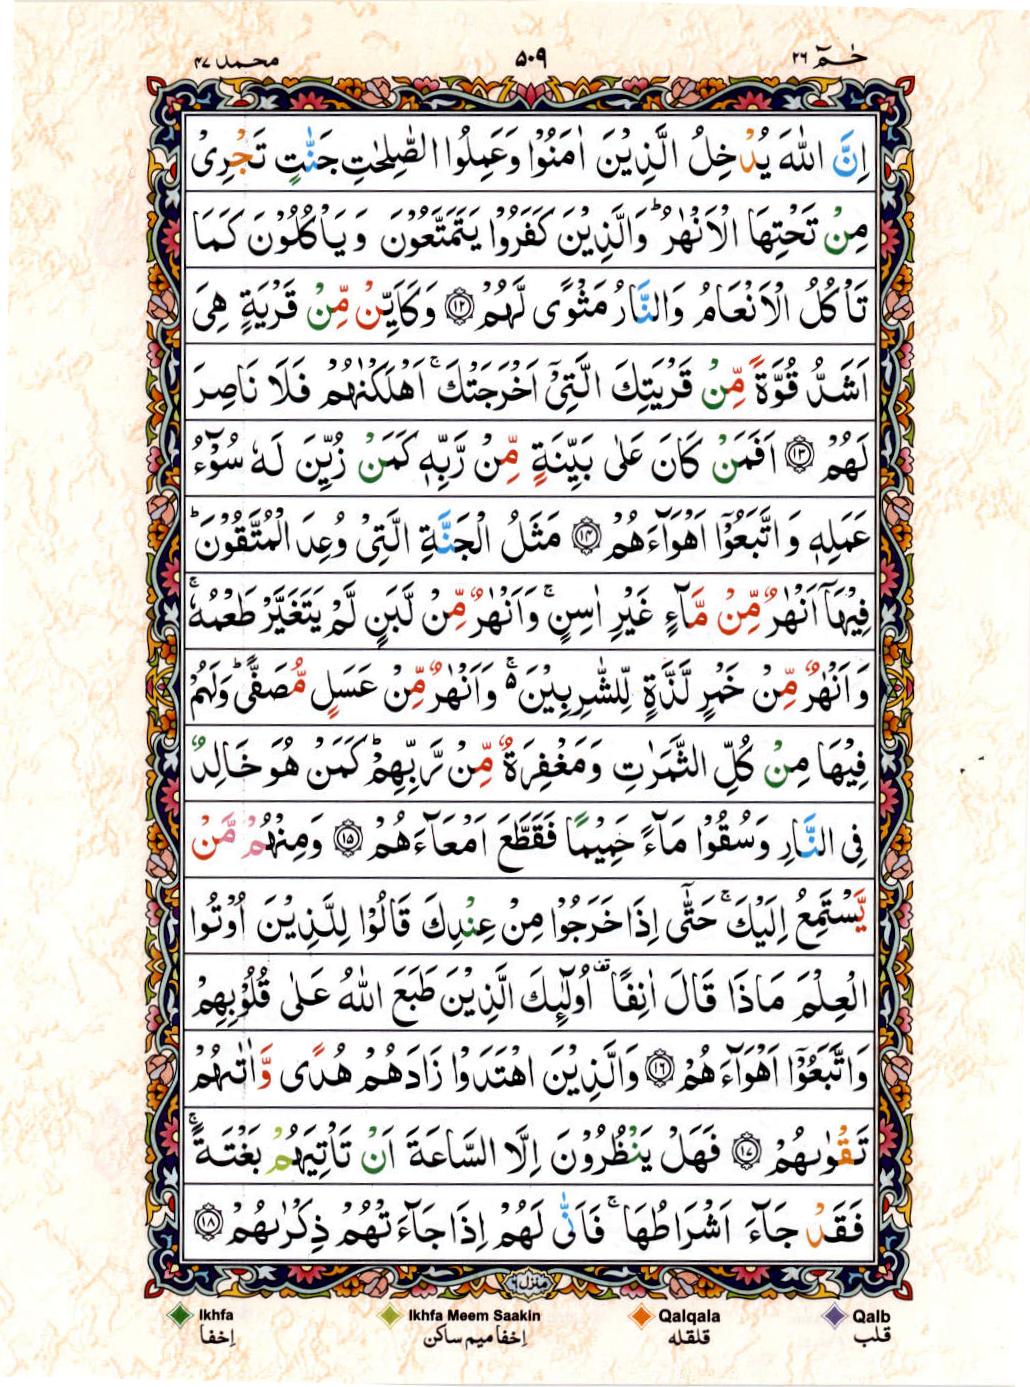 محمد ٤٧ ٥٠٩ حٰمٓ ٢٦
اِنَّ اللّٰهَ يُدْخِلُ الَّذِيْنَ اٰمَنُوْا وَعَمِلُوا الصّٰلِحٰتِ جَنّٰتٍ تَجْرِىْ
مِنْ تَحْتِهَا الْاَنْهٰرُ ؕ وَالَّذِيْنَ كَفَرُوْا يَتَمَتَّعُوْنَ وَيَاْكُلُوْنَ كَمَا
تَاْكُلُ الْاَنْعَامُ وَالنَّارُ مَثْوًى لَّهُمْ ﴿١٢﴾ وَكَاَيِّنْ مِّنْ قَرْيَةٍ هِىَ
اَشَدُّ قُوَّةً مِّنْ قَرْيَتِكَ الَّتِىْۤ اَخْرَجَتْكَ ۚ اَهْلَكْنٰهُمْ فَلَا نَاصِرَ
لَهُمْ ﴿١٣﴾ اَفَمَنْ كَانَ عَلٰى بَيِّنَةٍ مِّنْ رَّبِّهٖ كَمَنْ زُيِّنَ لَهٗ سُوْٓءُ
عَمَلِهٖ وَاتَّبَعُوْۤا اَهْوَآءَهُمْ ﴿١٤﴾ مَثَلُ الْجَنَّةِ الَّتِىْ وُعِدَ الْمُتَّقُوْنَ ؕ
فِيْهَاۤ اَنْهٰرٌ مِّنْ مَّآءٍ غَيْرِ اٰسِنٍ ۚ وَاَنْهٰرٌ مِّنْ لَّبَنٍ لَّمْ يَتَغَيَّرْ طَعْمُهٗ ۚ
وَاَنْهٰرٌ مِّنْ خَمْرٍ لَّذَّةٍ لِّلشّٰرِبِيْنَ ۚ۬ وَاَنْهٰرٌ مِّنْ عَسَلٍ مُّصَفًّى ؕ وَلَهُمْ
فِيْهَا مِنْ كُلِّ الثَّمَرٰتِ وَمَغْفِرَةٌ مِّنْ رَّبِّهِمْ ؕ كَمَنْ هُوَ خَالِدٌ
فِى النَّارِ وَسُقُوْا مَآءً حَمِيْمًا فَقَطَّعَ اَمْعَآءَهُمْ ﴿١٥﴾ وَمِنْهُمْ مَّنْ
يَّسْتَمِعُ اِلَيْكَ ۚ حَتّٰۤى اِذَا خَرَجُوْا مِنْ عِنْدِكَ قَالُوْا لِلَّذِيْنَ اُوْتُوا
الْعِلْمَ مَاذَا قَالَ اٰنِفًا ۟ اُولٰٓئِكَ الَّذِيْنَ طَبَعَ اللّٰهُ عَلٰى قُلُوْبِهِمْ
وَاتَّبَعُوْۤا اَهْوَآءَهُمْ ﴿١٦﴾ وَالَّذِيْنَ اهْتَدَوْا زَادَهُمْ هُدًى وَّاٰتٰٮهُمْ
تَقْوٰٮهُمْ ﴿١٧﴾ فَهَلْ يَنْظُرُوْنَ اِلَّا السَّاعَةَ اَنْ تَاْتِيَهُمْ بَغْتَةً ۚ
فَقَدْ جَآءَ اَشْرَاطُهَا ۚ فَاَنّٰى لَهُمْ اِذَا جَآءَتْهُمْ ذِكْرٰٮهُمْ ﴿١٨﴾
منزل ٦
Ikhfa Ikhfa Meem Saakin Qalqala Qalb
اِخفا اِخفا میم ساکن قلقله قلب